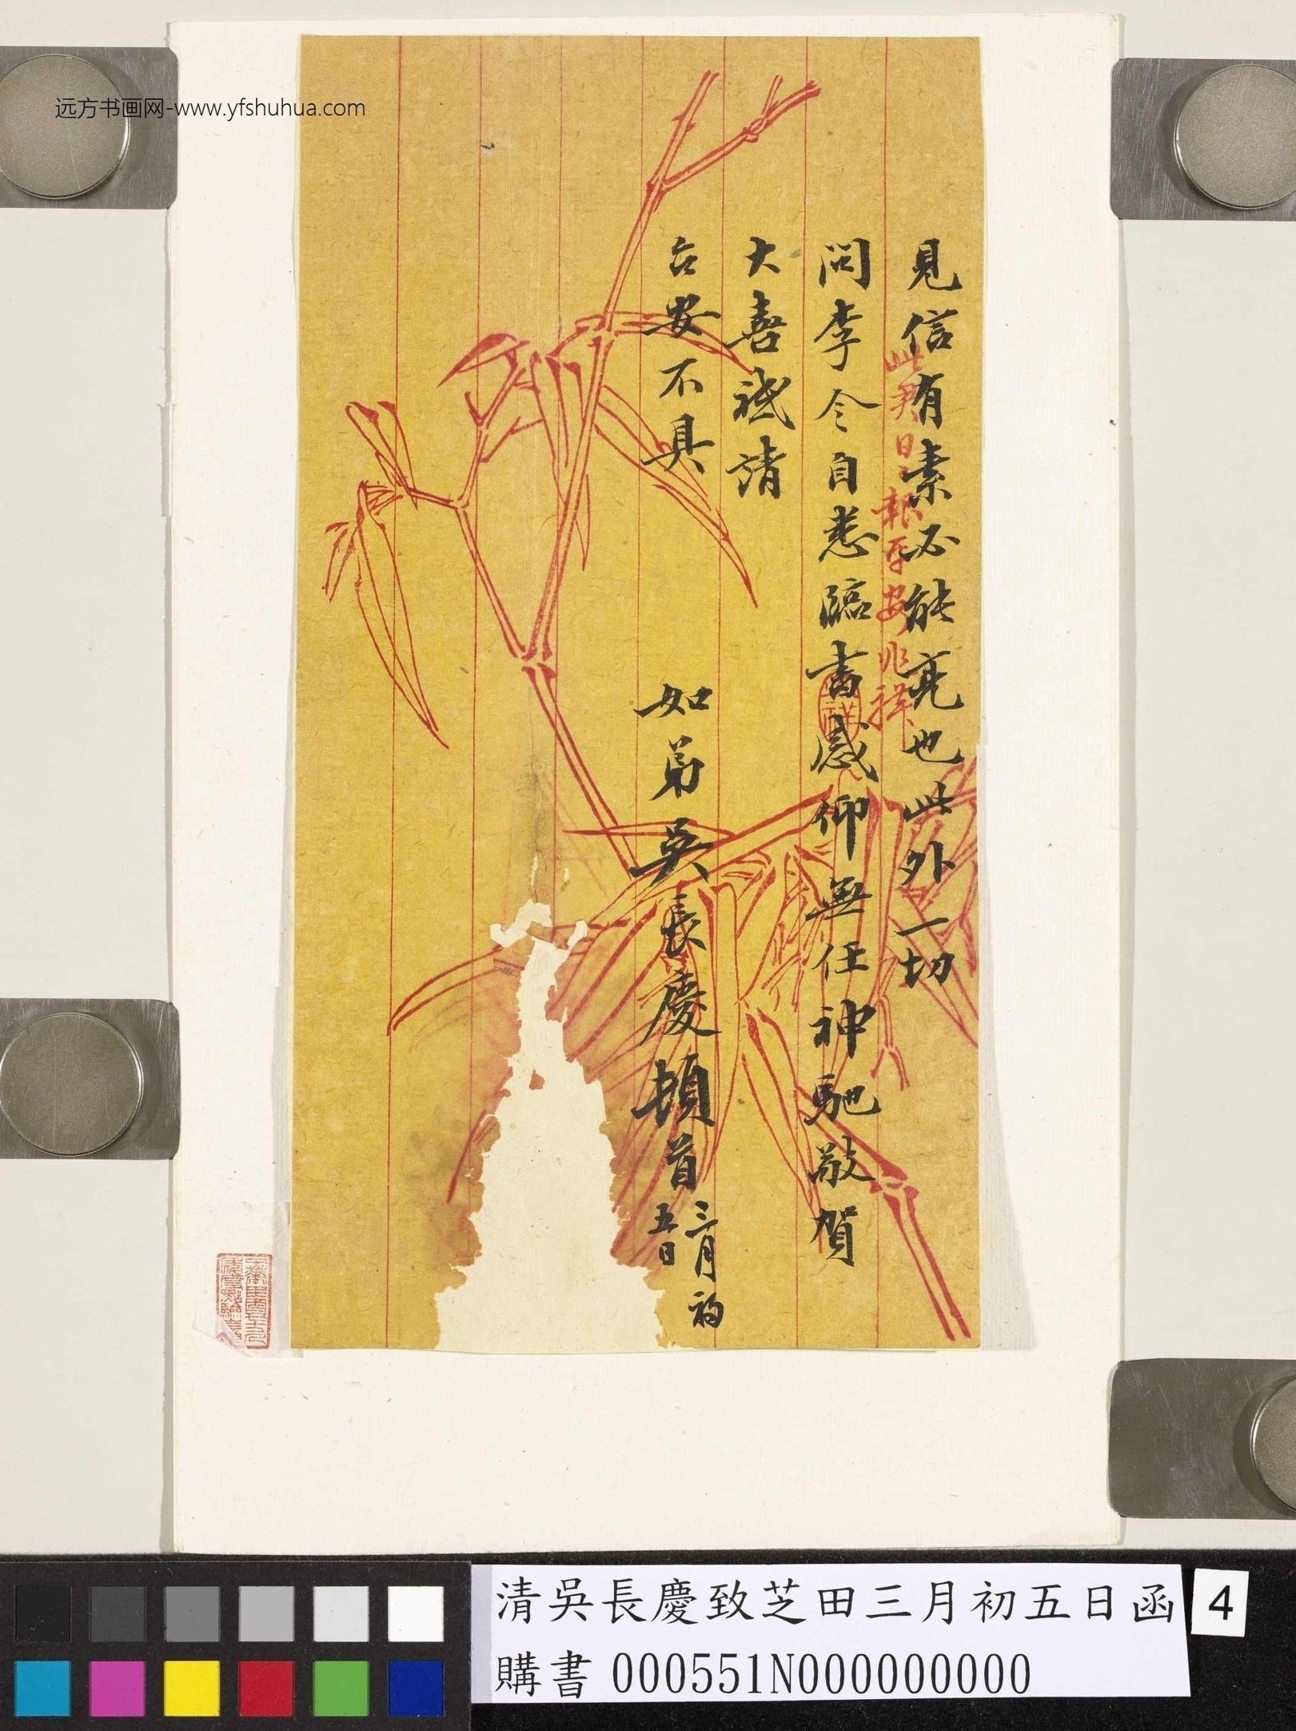 远方书画网-www.yfshuhua.com
見信有素必能亮也此外一切
問李令自悉臨書感仰無任神馳敬賀
大喜祗請
台安不具
如弟吳長慶頓首三月初
五日
日報平安
清吳長慶致芝田三月初五日函
4
購書 000551N000000000